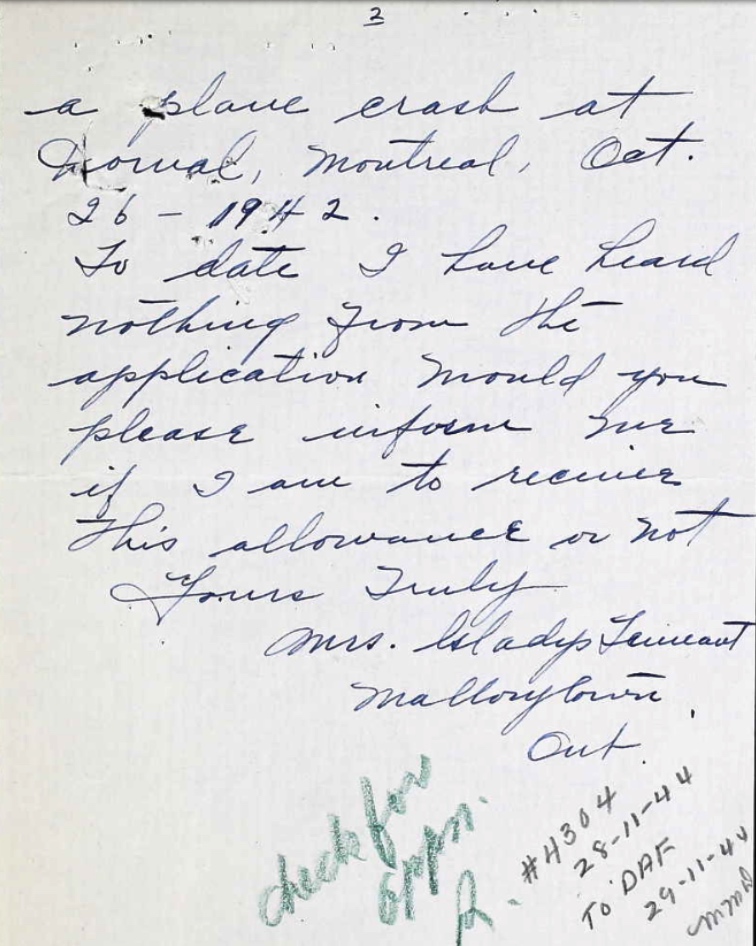 2
a plane crash at
Dorval, Montreal, Oct.
26 - 1942.
To date I have heard
nothing from the
application Would you
please inform me
if I am to receive
this allowance or not
Yours Truly
Mrs. Gladys Tennant
Mallorytown,
Ont.
check for
appn.
#4304
28-11-44
TO DAF
29-11-44